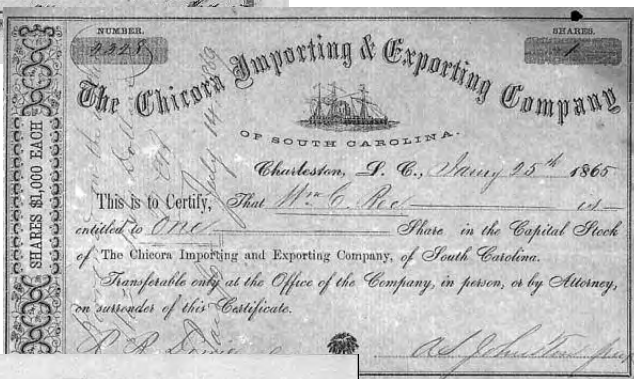 NUMBER.
2228
SHARES.
1
The Chicora Importing & Exporting Company
OF SOUTH CAROLINA.
SHARES $1,000 EACH
Charleston, S. C., Jany 25th 1865
This is to Certify, That Wm C. Bee is
entitled to One Share in the Capital Stock
of The Chicora Importing and Exporting Company, of South Carolina.
Transferable only at the Office of the Company, in person, or by Attorney,
on surrender of this Certificate.
July 14 1869